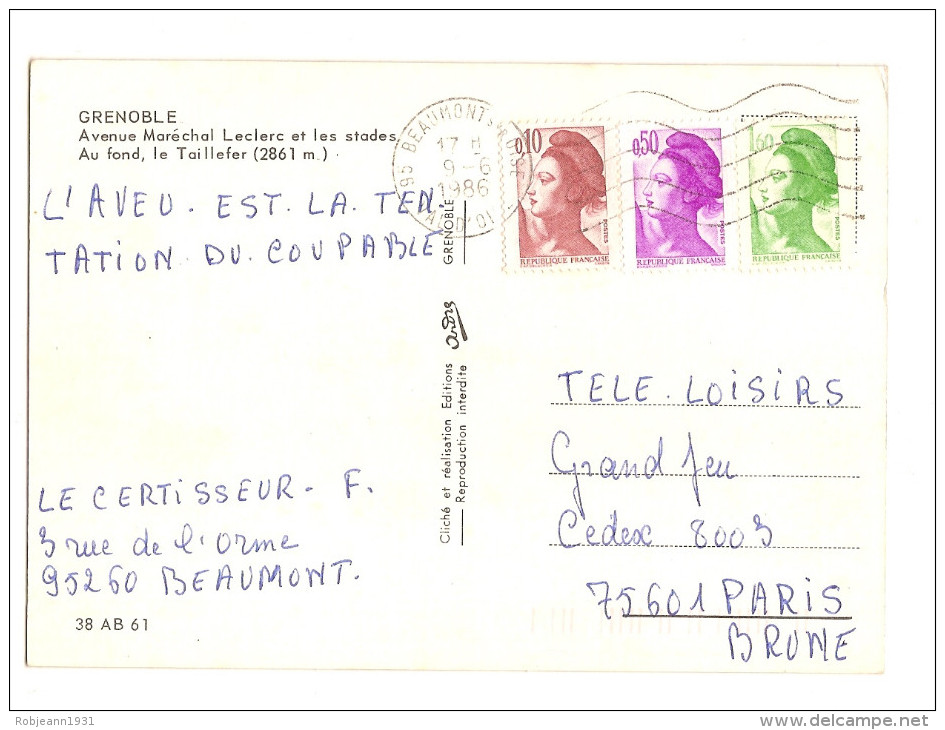 GRENOBLE
Avenue Maréchal Leclerc et les stades
Au fond, le Taillefer (2861 m.)
L'AVEU. EST. LA. TEN-
TATION. DU. COUPABLE
LE CERTISSEUR - F.
3 rue de l'Orme
95260 BEAUMONT.
38 AB 61
95 BEAUMONT
17 H
9-6
1986
VAL D'OI
GRENOBLE
Cliché et réalisation Editions
Reproduction interdite
andre
0,10
POSTES
REPUBLIQUE FRANÇAISE
0,50
POSTES
REPUBLIQUE FRANÇAISE
1,60
POSTES
REPUBLIQUE FRANÇAISE
TELE. LOISIRS
Grand Jeu
Cedex 8003
75601 PARIS
BRUNE
Robjeann1931
www.delcampe.net